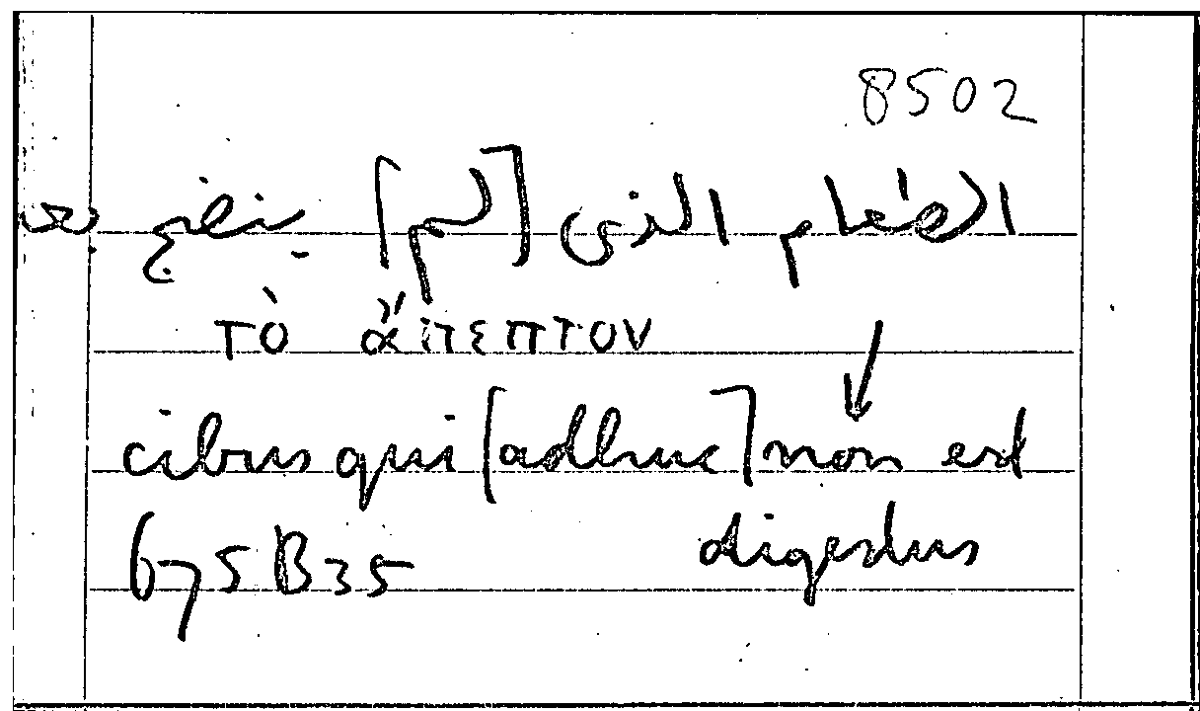 8502
الطعام الذى [لم] ينضج بعد
τὸ ἄπεπτον
cibus qui [adhuc] non est
675B35 digestus